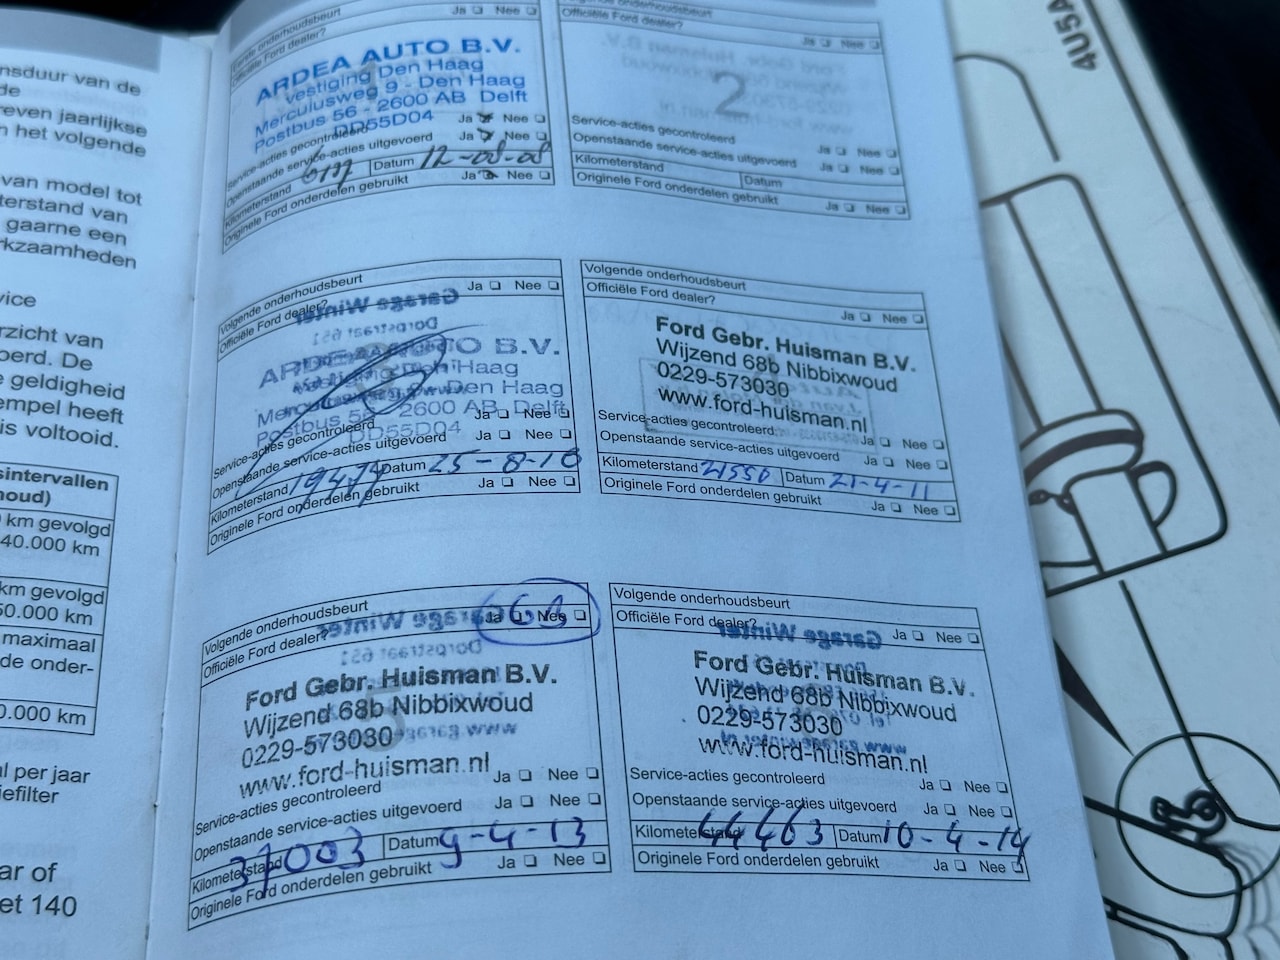 nsduur van de
de
reven jaarlijkse
n het volgende
van model tot
terstand van
gaarne een
rkzaamheden
vice
rzicht van
oerd. De
e geldigheid
empel heeft
is voltooid.
sintervallen
houd)
km gevolgd
40.000 km
km gevolgd
50.000 km
maximaal
de onder-
0.000 km
al per jaar
efilter
ar of
et 140
onderhoudsbeurt Ja Nee
Officiële Ford dealer?
ARDEA AUTO B.V.
vestiging Den Haag
Mercuriusweg 9 - Den Haag
Postbus 56 - 2600 AB Delft
DD55D04
Service-acties gecontroleerd Ja Nee
Openstaande service-acties uitgevoerd Ja Nee
Kilometerstand Datum 12-08-08
Originele Ford onderdelen gebruikt Ja Nee
onderhoudsbeurt
Officiële Ford dealer?
Ja Nee
2
Service-acties gecontroleerd
Ja Nee
Openstaande service-acties uitgevoerd
Ja Nee
Kilometerstand Datum
Originele Ford onderdelen gebruikt
Ja Nee
Volgende onderhoudsbeurt Ja Nee
Officiële Ford dealer?
Garage Winter
Dorpsstraat 651
ARDEA AUTO B.V.
vestiging Den Haag
Mercuriusweg 9 - Den Haag
Postbus 56 - 2600 AB Delft
DD55D04
Service-acties gecontroleerd Ja Nee
Openstaande service-acties uitgevoerd Ja Nee
Kilometerstand 19474 Datum 25-8-10
Originele Ford onderdelen gebruikt Ja Nee
Volgende onderhoudsbeurt
Officiële Ford dealer?
Ja Nee
Ford Gebr. Huisman B.V.
Wijzend 68b Nibbixwoud
0229-573030
www.ford-huisman.nl
Service-acties gecontroleerd
Ja Nee
Openstaande service-acties uitgevoerd
Ja Nee
Kilometerstand 21550 Datum 21-4-11
Originele Ford onderdelen gebruikt
Ja Nee
Volgende onderhoudsbeurt Ja Nee
Officiële Ford dealer?
Garage Winter
Dorpsstraat 651
Ford Gebr. Huisman B.V.
Wijzend 68b Nibbixwoud
0229-573030
www.ford-huisman.nl
Service-acties gecontroleerd Ja Nee
Openstaande service-acties uitgevoerd Ja Nee
Kilometerstand 37003 Datum 9-4-13
Originele Ford onderdelen gebruikt Ja Nee
Volgende onderhoudsbeurt
Officiële Ford dealer? Ja Nee
Garage Winter
Ford Gebr. Huisman B.V.
Wijzend 68b Nibbixwoud
0229-573030
www.ford-huisman.nl
Service-acties gecontroleerd Ja Nee
Openstaande service-acties uitgevoerd Ja Nee
Kilometerstand 44463 Datum 10-4-14
Originele Ford onderdelen gebruikt Ja Nee
4U5A